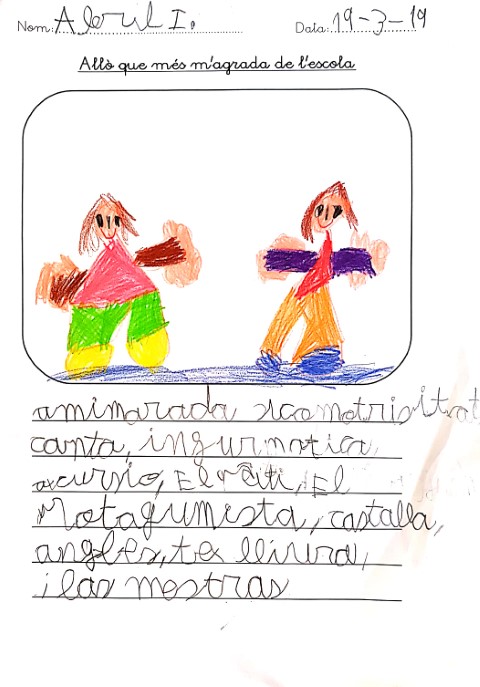 Nom: Abril I. Data: 19-3-19
Allò que més m'agrada de l'escola
amimarada sicomotrisitat
canta, ingurmatica,
axcursio, El Pati, El
Protagunista, castallà,
anglès, te lliura,
i las mestras